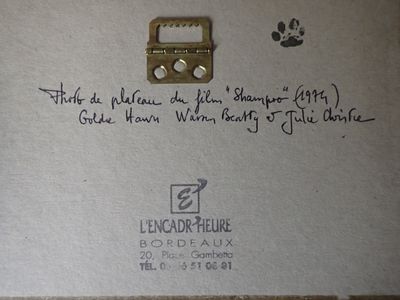 Photo de plateau du film "Shampoo" (1974)
Goldie Hawn Warren Beatty et Julie Christie
E
L'ENCADR'HEURE
BORDEAUX
20, Place Gambetta
TÉL. 51 08 91